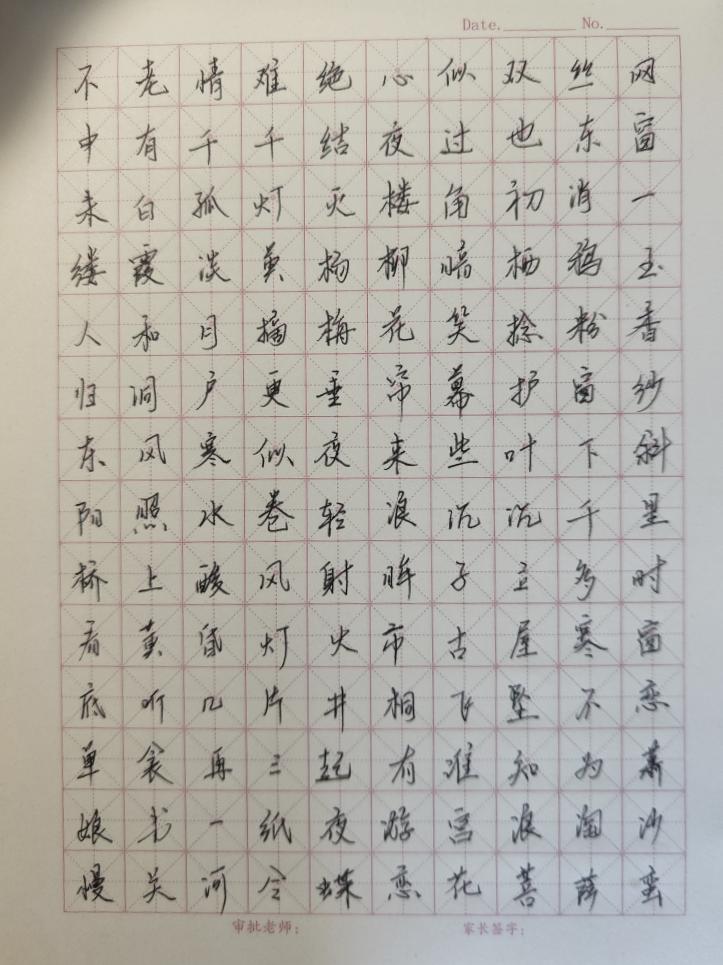 Date. No.
不老情难绝心似双丝网
中有千千结夜过也东窗
未白孤灯灭楼角初消一
缕霞淡黄杨柳暗栖鸦玉
人和月摘梅花笑捻粉香
归洞户更垂帘幕护窗纱
东风寒似夜来些叶下斜
阳照水卷轻浪沉沉千里
桥上酸风射眸子立多时
看黄昏灯火市古屋寒窗
底听几片井桐飞坠不恋
单衾再三起有谁知为萧
娘书一纸夜游宫浪淘沙
慢关河令蝶恋花菩萨蛮
审批老师： 家长签字：